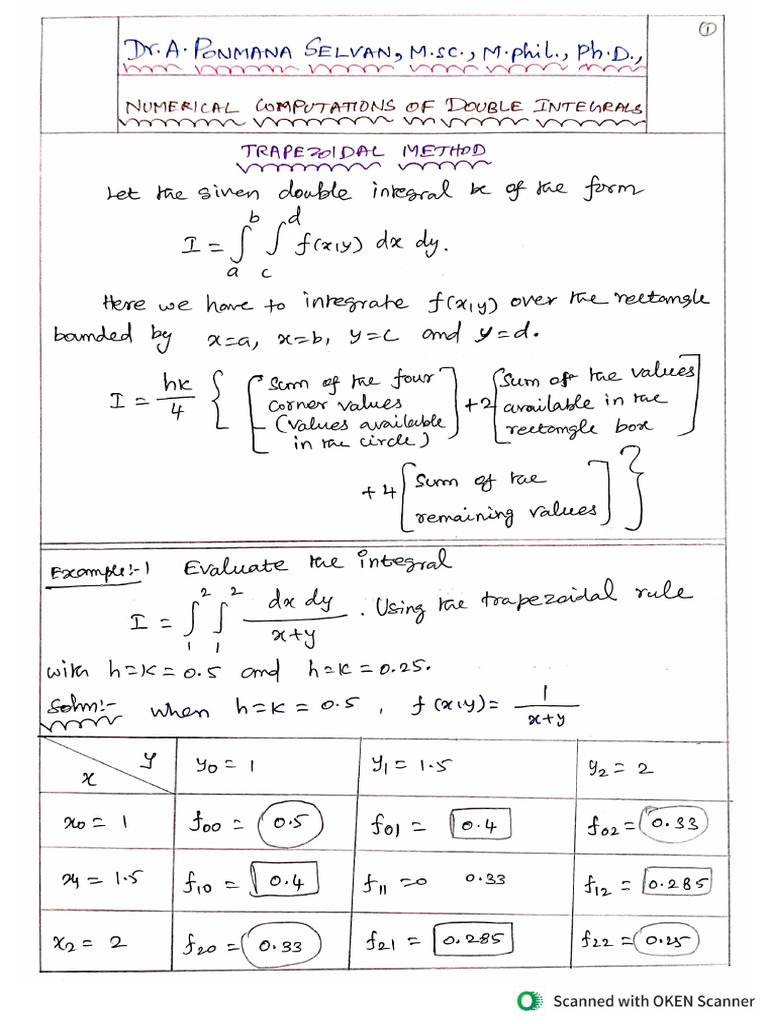 ①
Dr. A. PONMANA SELVAN, M.Sc., M.Phil., Ph.D.,
NUMERICAL COMPUTATIONS OF DOUBLE INTEGRALS
TRAPEZOIDAL METHOD
Let the given double integral be of the form
I = ∫_a^b ∫_c^d f(x,y) dx dy.
Here we have to integrate f(x,y) over the rectangle
bounded by x=a, x=b, y=c and y=d.
I = hk/4 { [Sum of the four corner values (values available in the circle)] + 2 [Sum of the values available in the rectangle box]
+ 4 [Sum of the remaining values] }
Example:-1 Evaluate the integral
I = ∫_1^2 ∫_1^2 dx dy/(x+y). Using the trapezoidal rule
with h=k=0.5 and h=k=0.25.
Soln:- when h=k=0.5, f(x,y)= 1/(x+y)
x y y0 = 1 y1 = 1.5 y2 = 2
x0 = 1 f00 = 0.5 f01 = 0.4 f02 = 0.33
x1 = 1.5 f10 = 0.4 f11 =0 0.33 f12 = 0.285
x2 = 2 f20 = 0.33 f21 = 0.285 f22 = 0.25
Scanned with OKEN Scanner